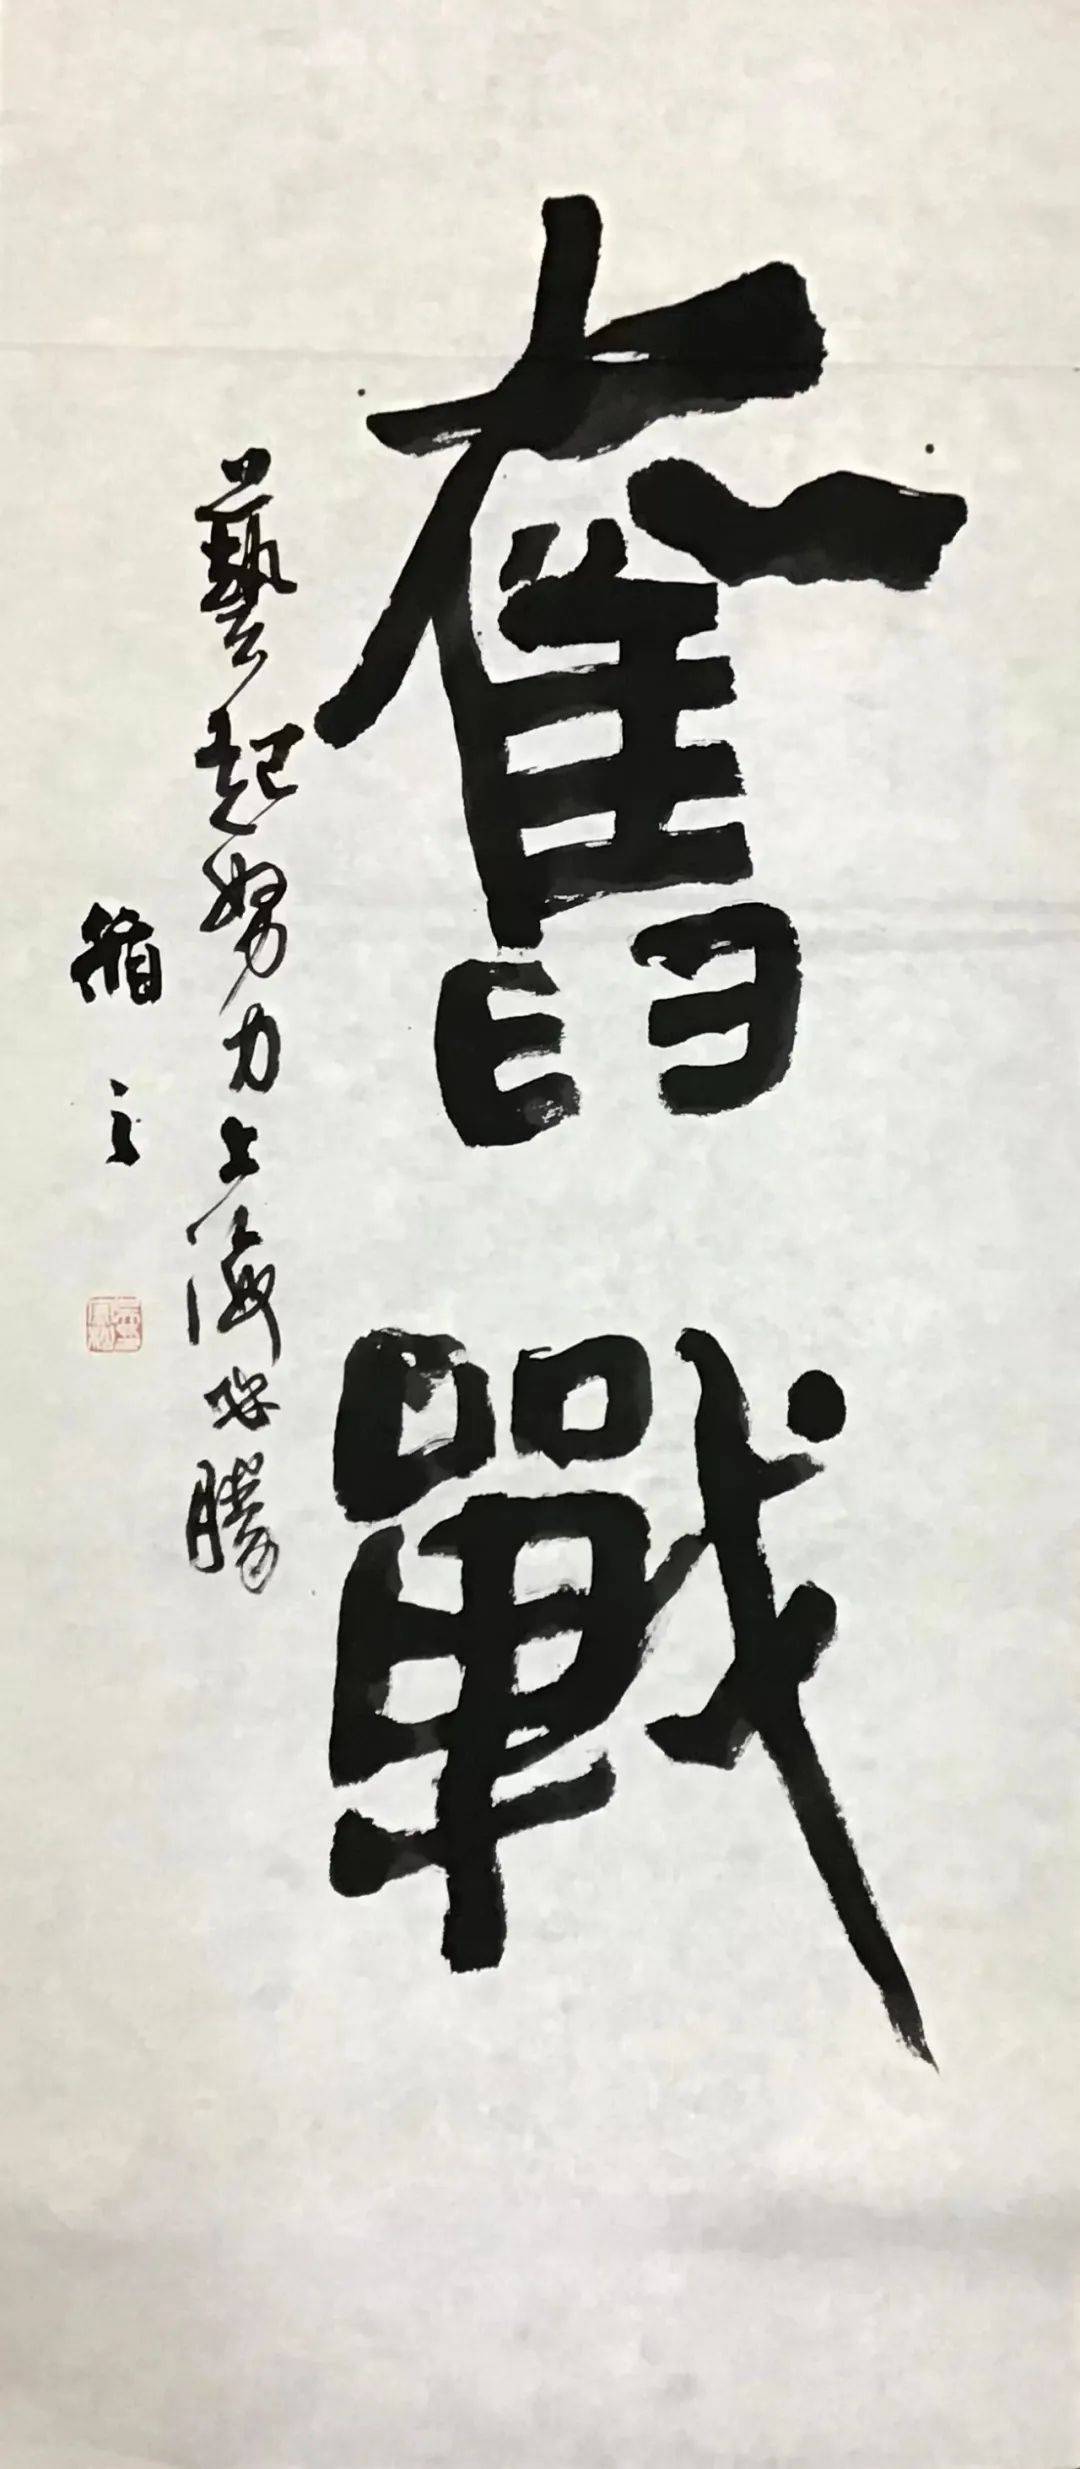 奮戰
藝起努力上海必勝
循之